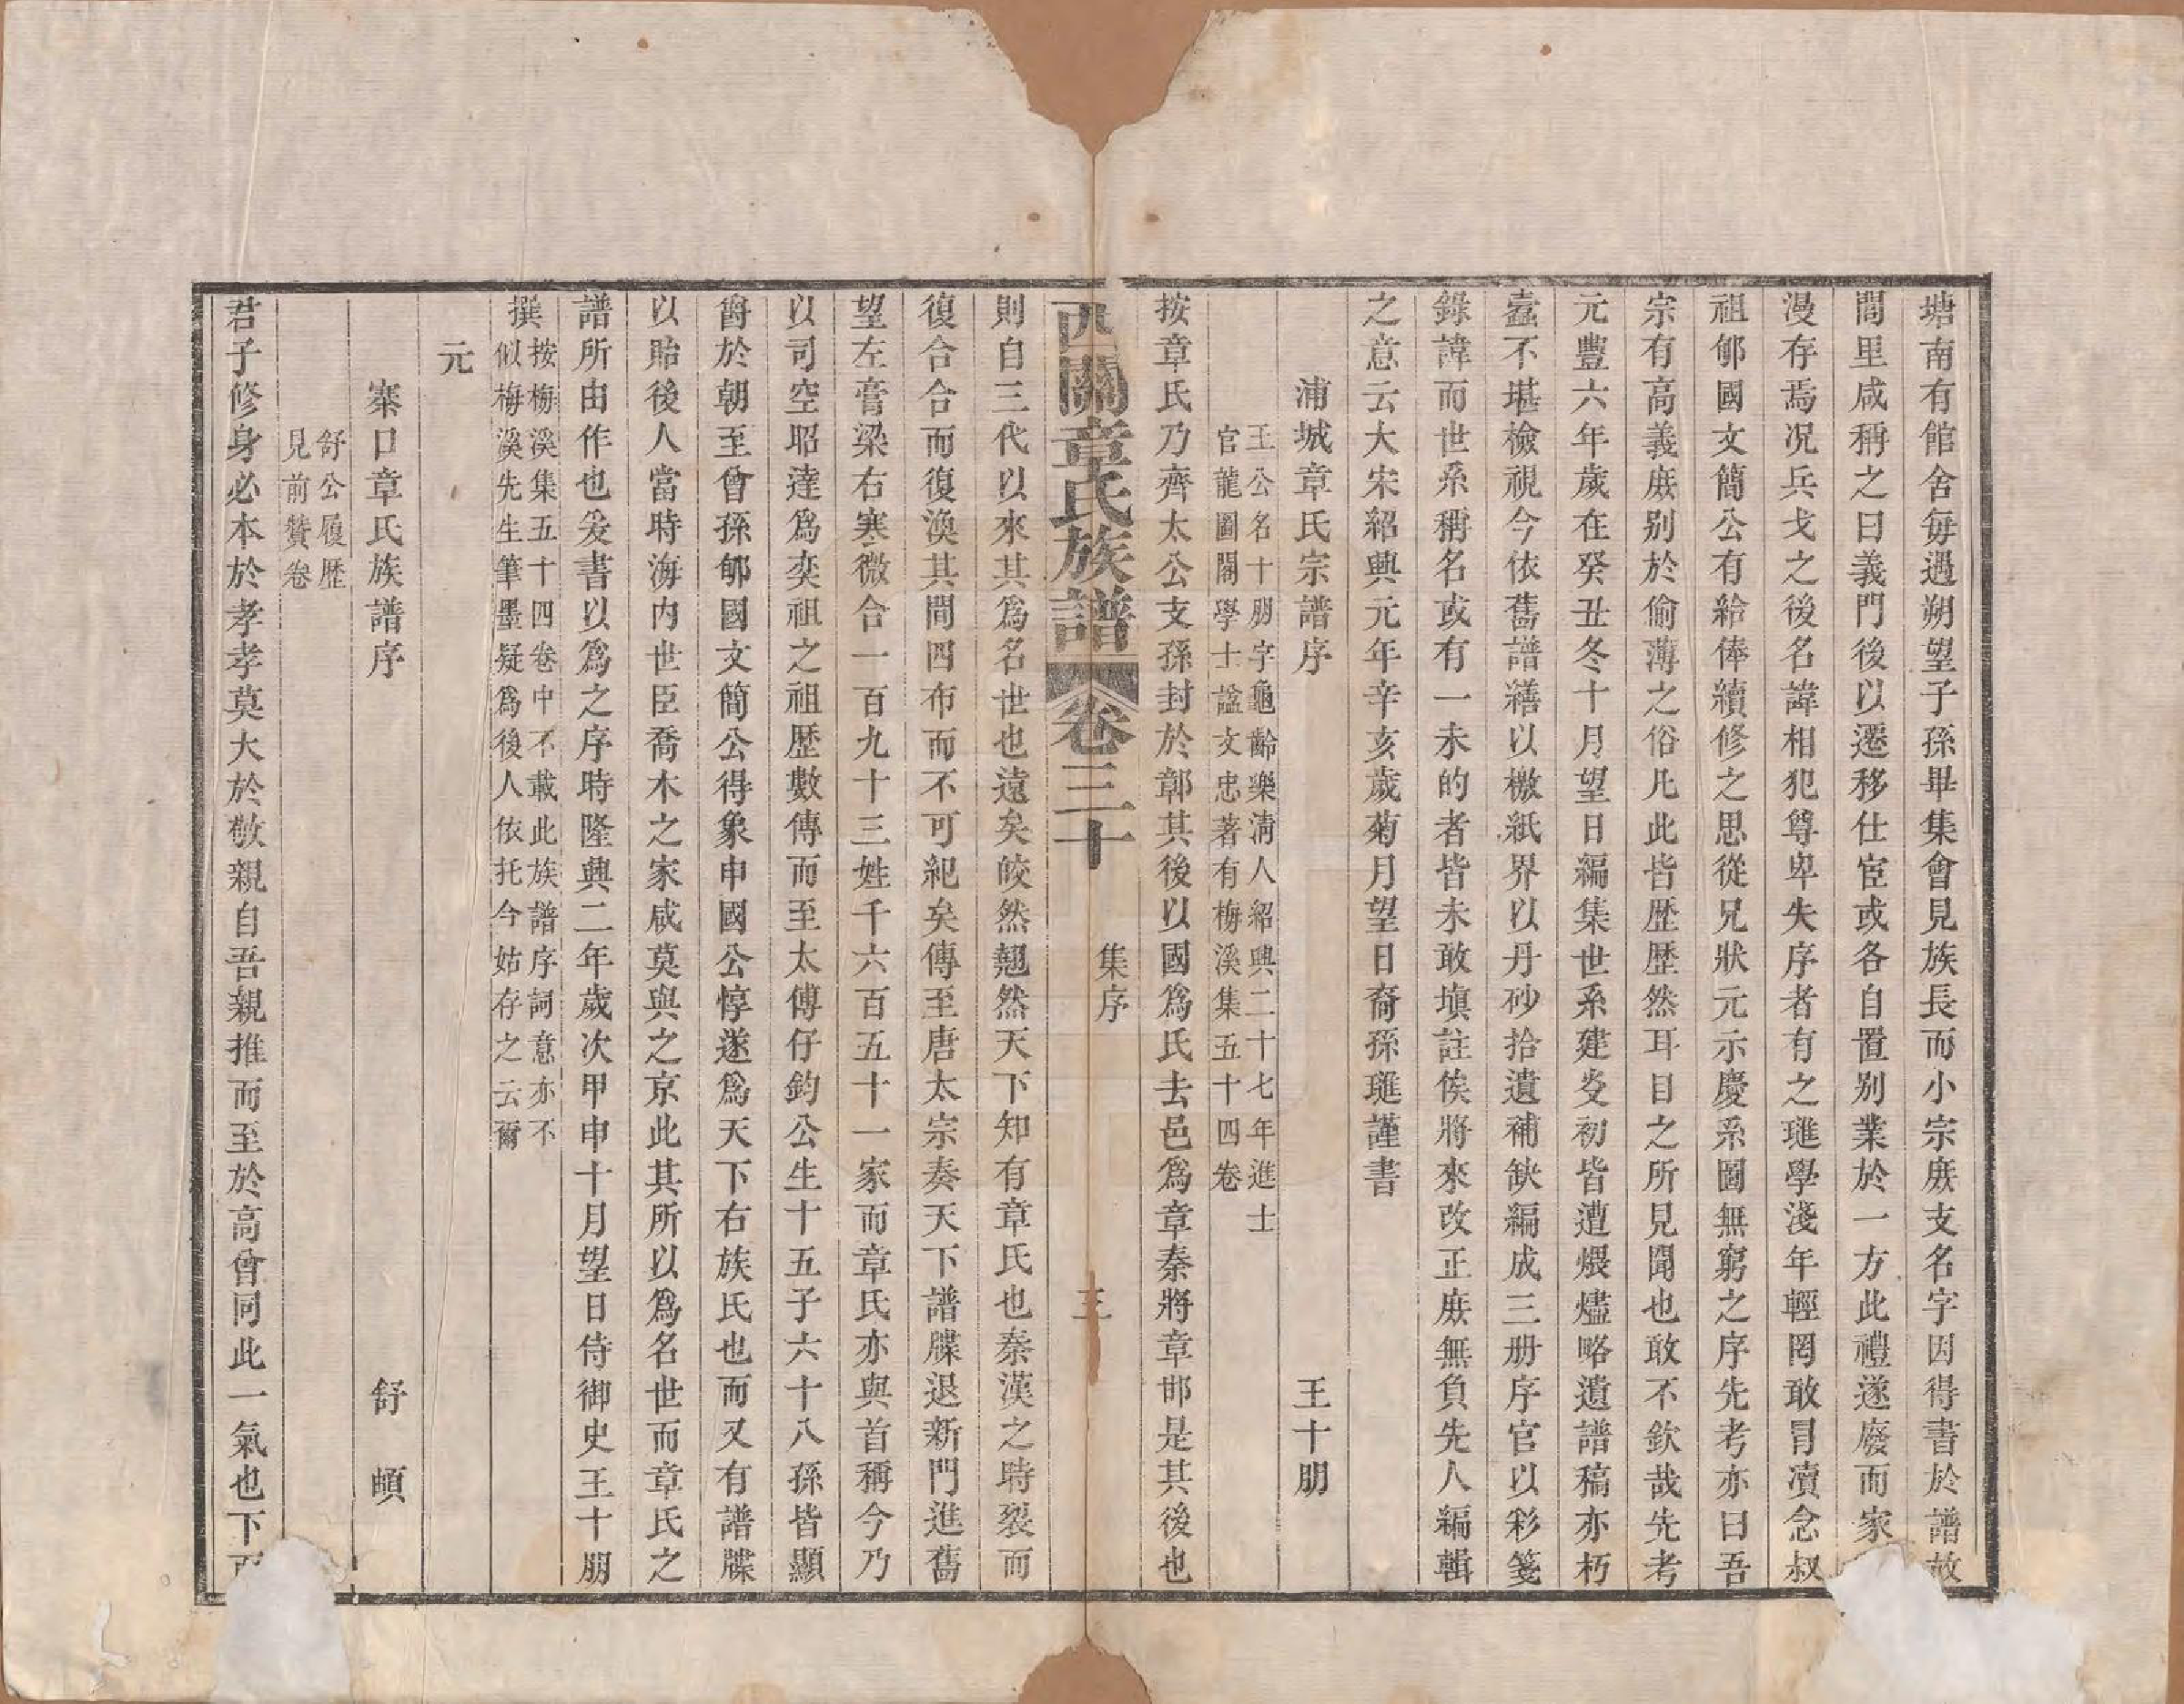 塘南有館舍每過朔望子孫畢集會見族長而小宗庶支名字因得書於譜故
閭里咸稱之曰義門後以遷移仕宦或各自置别業於一方此禮遂廢而家
漫存焉况兵戈之後名諱相犯尊卑失序者有之璡學淺年輕罔敢冒瀆念叔
祖郇國文簡公有給俸續修之思從兄狀元示慶系圖無窮之序先考亦曰吾
宗有高義庶别於偷薄之俗凡此皆歷歷然耳目之所見聞也敢不欽哉先考
元豐六年歲在癸丑冬十月望日編集世系建炎初皆遭煨燼略遺譜稿亦朽
蠹不堪檢視今依舊譜繕以檄紙界以丹砂拾遺補缺編成三册序官以彩箋
錄諱而世系稱名或有一未的者皆未敢塡註俟將來改正庶無負先人編輯
之意云大宋紹興元年辛亥歲菊月望日裔孫璡謹書
浦城章氏宗譜序　王十朋
王公名十朋字龜齡樂淸人紹興二十七年進士
官龍圖閣學士諡文忠著有梅溪集五十四卷
按章氏乃齊太公支孫封於鄣其後以國爲氏去邑爲章秦將章邯是其後也
西關章氏族譜　卷三十　集序　三
則自三代以來其爲名世也遠矣皎然翹然天下知有章氏也秦漢之時裂而
復合合而復渙其間四布而不可紀矣傳至唐太宗奏天下譜牒退新門進舊
望左膏梁右寒微合一百九十三姓千六百五十一家而章氏亦與首稱今乃
以司空昭達爲奕祖之祖歷數傳而至太傅仔鈞公生十五子六十八孫皆顯
爵於朝至曾孫郇國文簡公得象申國公惇遂爲天下右族氏也而又有譜牒
以貽後人當時海内世臣喬木之家咸莫與之京此其所以爲名世而章氏之
譜所由作也爰書以爲之序時隆興二年歲次甲申十月望日侍御史王十朋
撰
按梅溪集五十四卷中不載此族譜序詞意亦不
似梅溪先生筆墨疑爲後人依托今姑存之云爾
元
寨口章氏族譜序　舒　頔
舒公履歷
見前贊卷
君子修身必本於孝孝莫大於敬親自吾親推而至於高曾同此一氣也下而